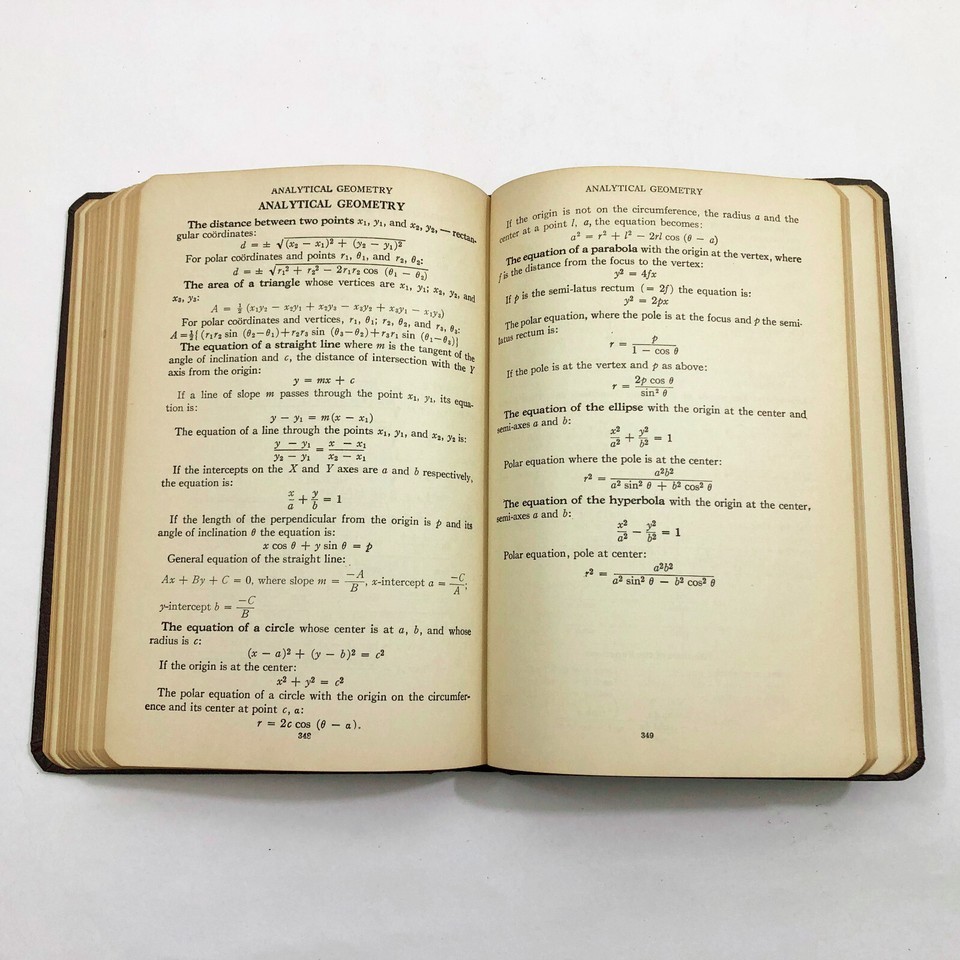 ANALYTICAL GEOMETRY
ANALYTICAL GEOMETRY
The distance between two points x₁, y₁, and x₂, y₂, — rectan-
gular coördinates:
d = ± √(x₂ − x₁)² + (y₂ − y₁)²
For polar coördinates and points r₁, θ₁, and r₂, θ₂:
d = ± √r₁² + r₂² − 2r₁r₂ cos (θ₁ − θ₂)
The area of a triangle whose vertices are x₁, y₁; x₂, y₂, and
x₃, y₃:
A = ½ (x₁y₂ − x₂y₁ + x₂y₃ − x₃y₂ + x₃y₁ − x₁y₃)
For polar coördinates and vertices, r₁, θ₁; r₂, θ₂, and r₃, θ₃:
A = ½{(r₁r₂ sin (θ₂−θ₁)+r₂r₃ sin (θ₃−θ₂)+r₃r₁ sin (θ₁−θ₃)}
The equation of a straight line where m is the tangent of the
angle of inclination and c, the distance of intersection with the Y
axis from the origin:
y = mx + c
If a line of slope m passes through the point x₁, y₁, its equa-
tion is:
y − y₁ = m(x − x₁)
The equation of a line through the points x₁, y₁, and x₂, y₂ is:
y − y₁ / y₂ − y₁ = x − x₁ / x₂ − x₁
If the intercepts on the X and Y axes are a and b respectively,
the equation is:
x/a + y/b = 1
If the length of the perpendicular from the origin is p and its
angle of inclination θ the equation is:
x cos θ + y sin θ = p
General equation of the straight line:
Ax + By + C = 0, where slope m = −A/B, x-intercept a = −C/A;
y-intercept b = −C/B
The equation of a circle whose center is at a, b, and whose
radius is c:
(x − a)² + (y − b)² = c²
If the origin is at the center:
x² + y² = c²
The polar equation of a circle with the origin on the circumfer-
ence and its center at point c, a:
r = 2c cos (θ − a).
348
ANALYTICAL GEOMETRY
If the origin is not on the circumference, the radius a and the
center at a point l, a, the equation becomes:
a² = r² + l² − 2rl cos (θ − a)
The equation of a parabola with the origin at the vertex, where
f is the distance from the focus to the vertex:
y² = 4fx
If p is the semi-latus rectum (= 2f) the equation is:
y² = 2px
The polar equation, where the pole is at the focus and p the semi-
latus rectum is:
r = p / 1 − cos θ
If the pole is at the vertex and p as above:
r = 2p cos θ / sin² θ
The equation of the ellipse with the origin at the center and
semi-axes a and b:
x²/a² + y²/b² = 1
Polar equation where the pole is at the center:
r² = a²b² / a² sin² θ + b² cos² θ
The equation of the hyperbola with the origin at the center,
semi-axes a and b:
x²/a² − y²/b² = 1
Polar equation, pole at center:
r² = a²b² / a² sin² θ − b² cos² θ
349